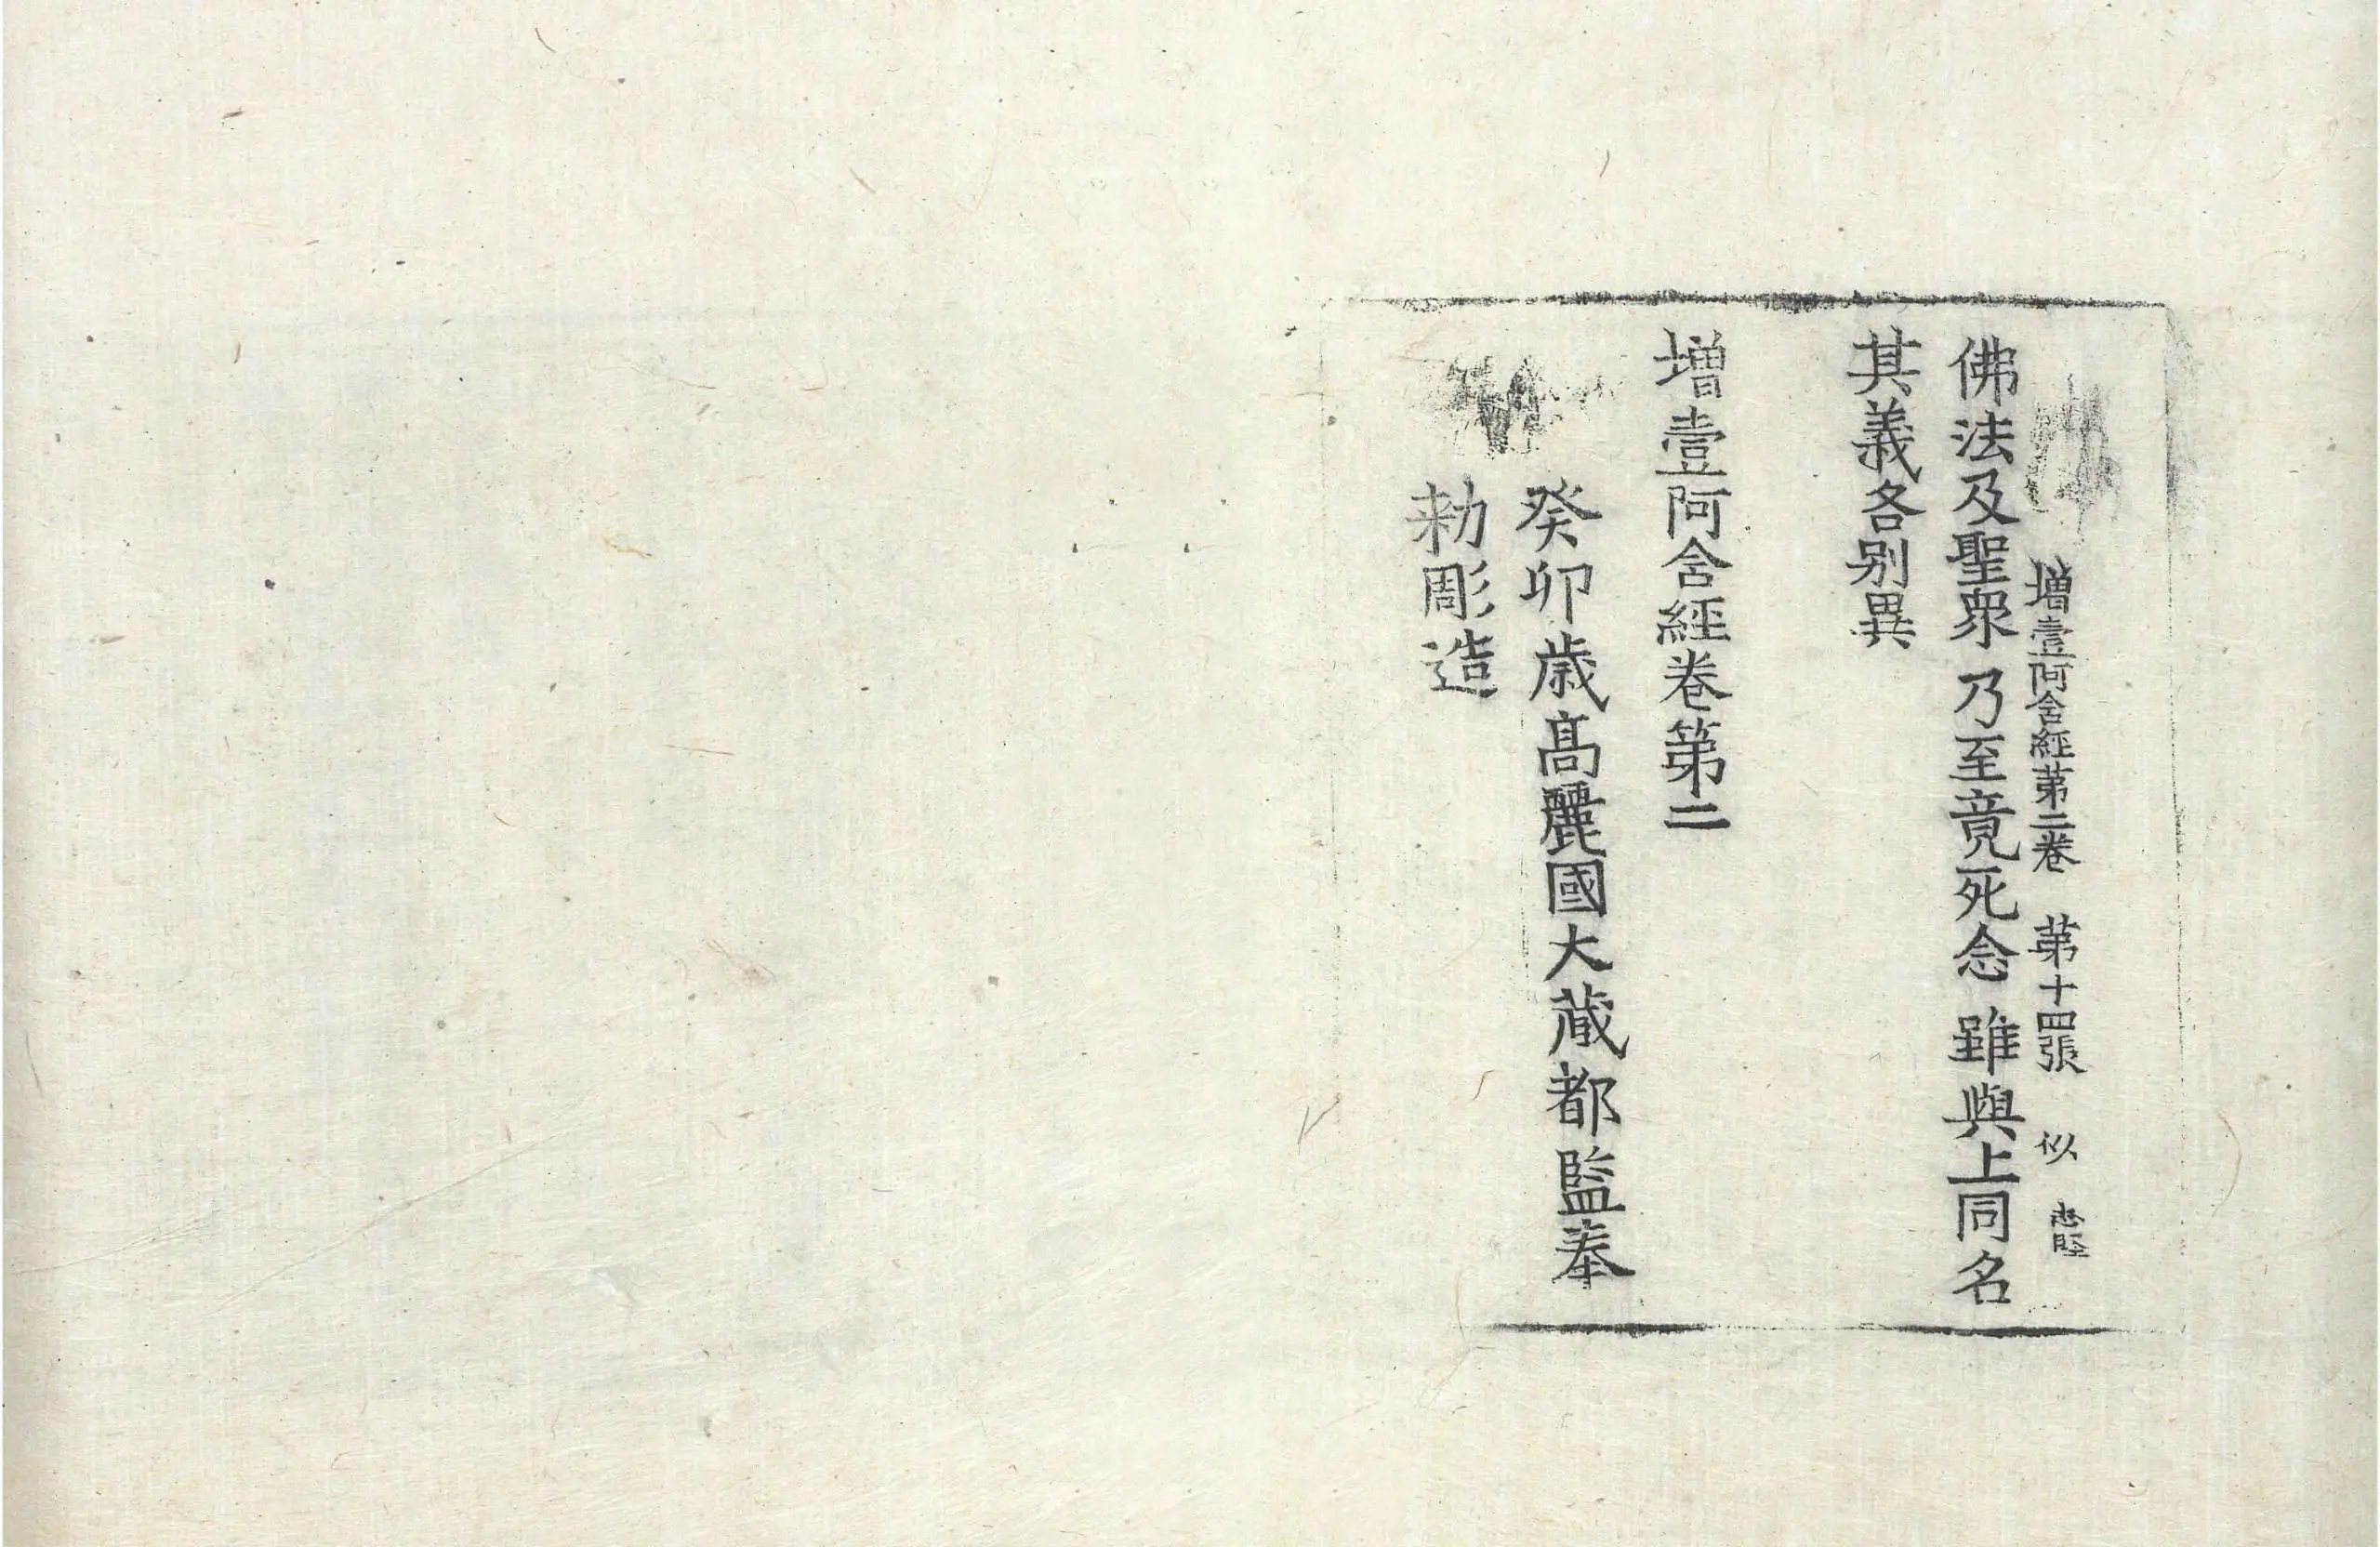 增壹阿含經第二卷　第十四張　似
佛法及聖衆　乃至竟死念　雖與上同名
其義各別異
增壹阿含經卷第二
癸卯歲高麗國大藏都監奉
勅彫造